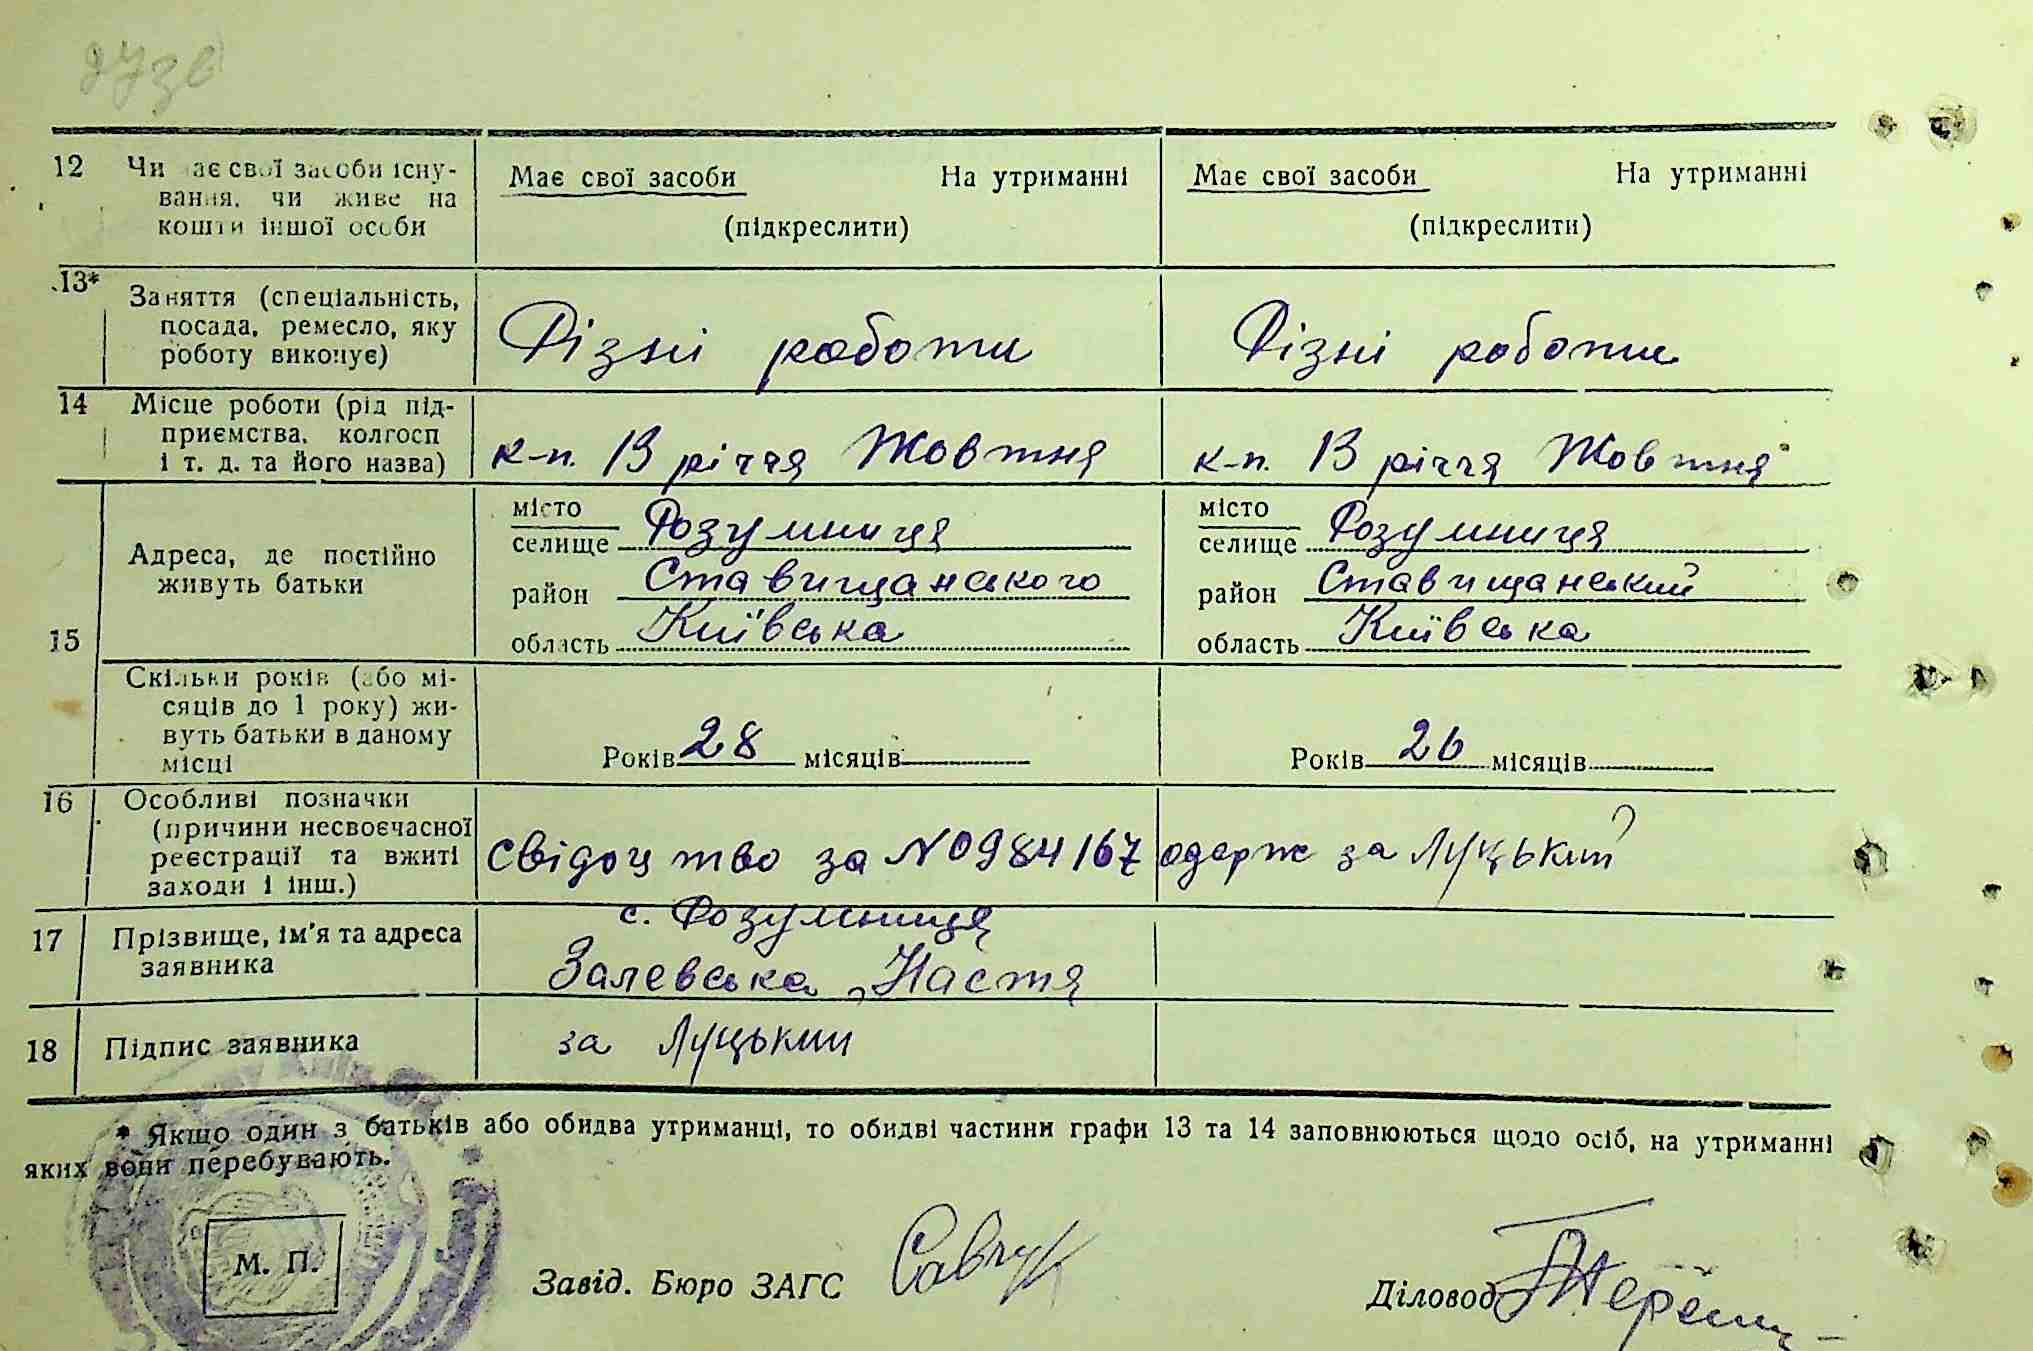 12 Чи має свої засоби існу- Має свої засоби На утриманні Має свої засоби На утриманні
вання, чи живе на
кошти іншої особи (підкреслити) (підкреслити)
13* Заняття (спеціальність,
посада, ремесло, яку Різні роботи Різні роботи
роботу виконує)
14 Місце роботи (рід під-
приємства, колгосп
і т. д. та його назва) к-п. 13 річчя Жовтня к-п. 13 річчя Жовтня
15 Адреса, де постійно
живуть батьки
місто
селище Розумниця
район Ставищанського
область Київська
місто
селище Розумниця
район Ставищанський
область Київська
Скільки років (або мі-
сяців до 1 року) жи-
вуть батьки в даному
місці
Років 28 місяців Років 26 місяців
16 Особливі позначки
(причини несвоєчасної
реєстрації та вжиті
заходи і інш.)
свідоцтво за № 0984167 одерж за Луцький
17 Прізвище, ім'я та адреса
заявника
с. Розумниця
Залевська Настя
18 Підпис заявника за Луцький
* Якщо один з батьків або обидва утриманці, то обидві частини графи 13 та 14 заповнюються щодо осіб, на утриманні
яких вони перебувають.
М. П.
Завід. Бюро ЗАГС Савчук
Діловод